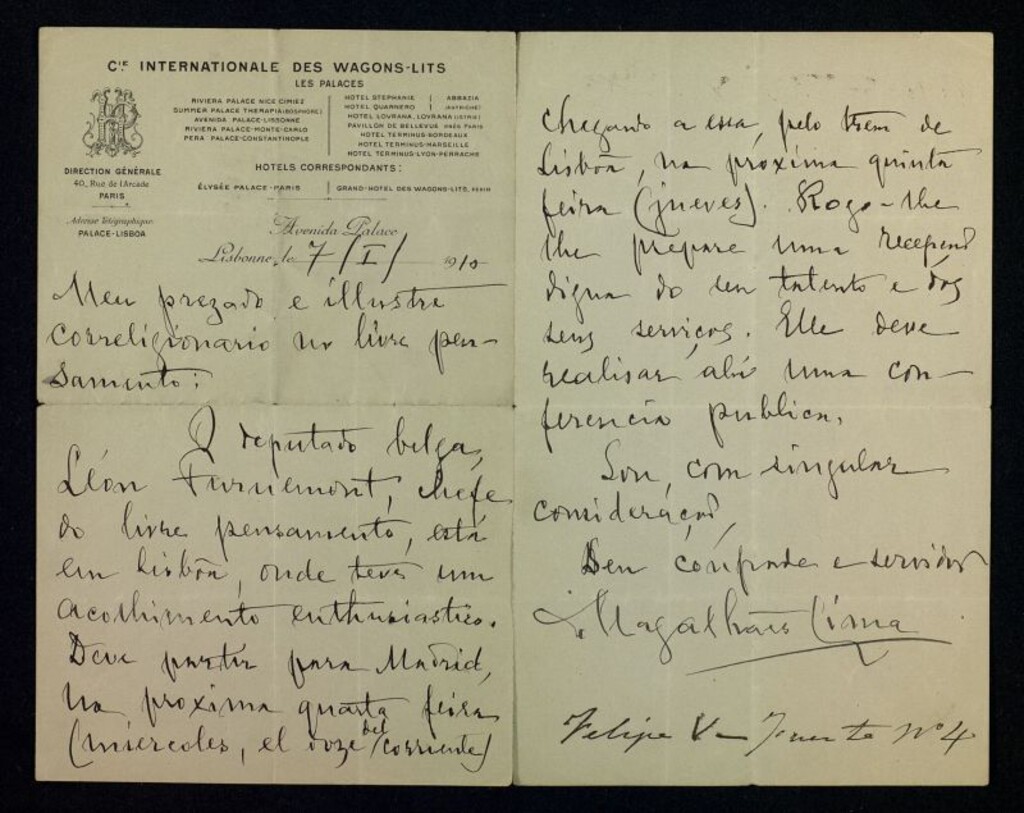 CIE INTERNATIONALE DES WAGONS-LITS
LES PALACES
RIVIERA PALACE NICE CIMIEZ
SUMMER PALACE THERAPIA (BOSPHORE)
AVENIDA PALACE-LISBONNE
RIVIERA PALACE-MONTE-CARLO
PERA PALACE-CONSTANTINOPLE
HOTEL STEPHANIE | ABBAZIA
HOTEL QUARNERO | (AUTRICHE)
HOTEL LOVRANA, LOVRANA (ISTRIE)
PAVILLON DE BELLEVUE PRÈS PARIS
HOTEL TERMINUS-BORDEAUX
HOTEL TERMINUS-MARSEILLE
HOTEL TERMINUS-LYON-PERRACHE
HOTELS CORRESPONDANTS:
ÉLYSÉE PALACE-PARIS
GRAND-HOTEL DES WAGONS-LITS, PEKIN
DIRECTION GÉNÉRALE
40, Rue de l'Arcade
PARIS
Adresse Télégraphique
PALACE-LISBOA
Avenida Palace
Lisbonne, le 7/I/ 1910
Meu prezado e illustre
correligionario no livre pen-
samento:
O deputado belga,
Léon Furnemont, chefe
do livre pensamento, está
em Lisbôa, onde teve um
acolhimento enthusiastico.
Deve partir para Madrid,
na proxima quarta feira
(miercoles, el doze del corriente)
chegando a essa, pelo trem de
Lisbôa, na próxima quinta
feira (jueves). Rogo-lhe
lhe prepare uma recepção
digna do seu talento e dos
seus serviços. Elle deve
realisar ahi uma con-
ferencia publica.
Sou, com singular
consideração,
Seu confrade e servidor
Magalhães Lima
Felipe V nº 4